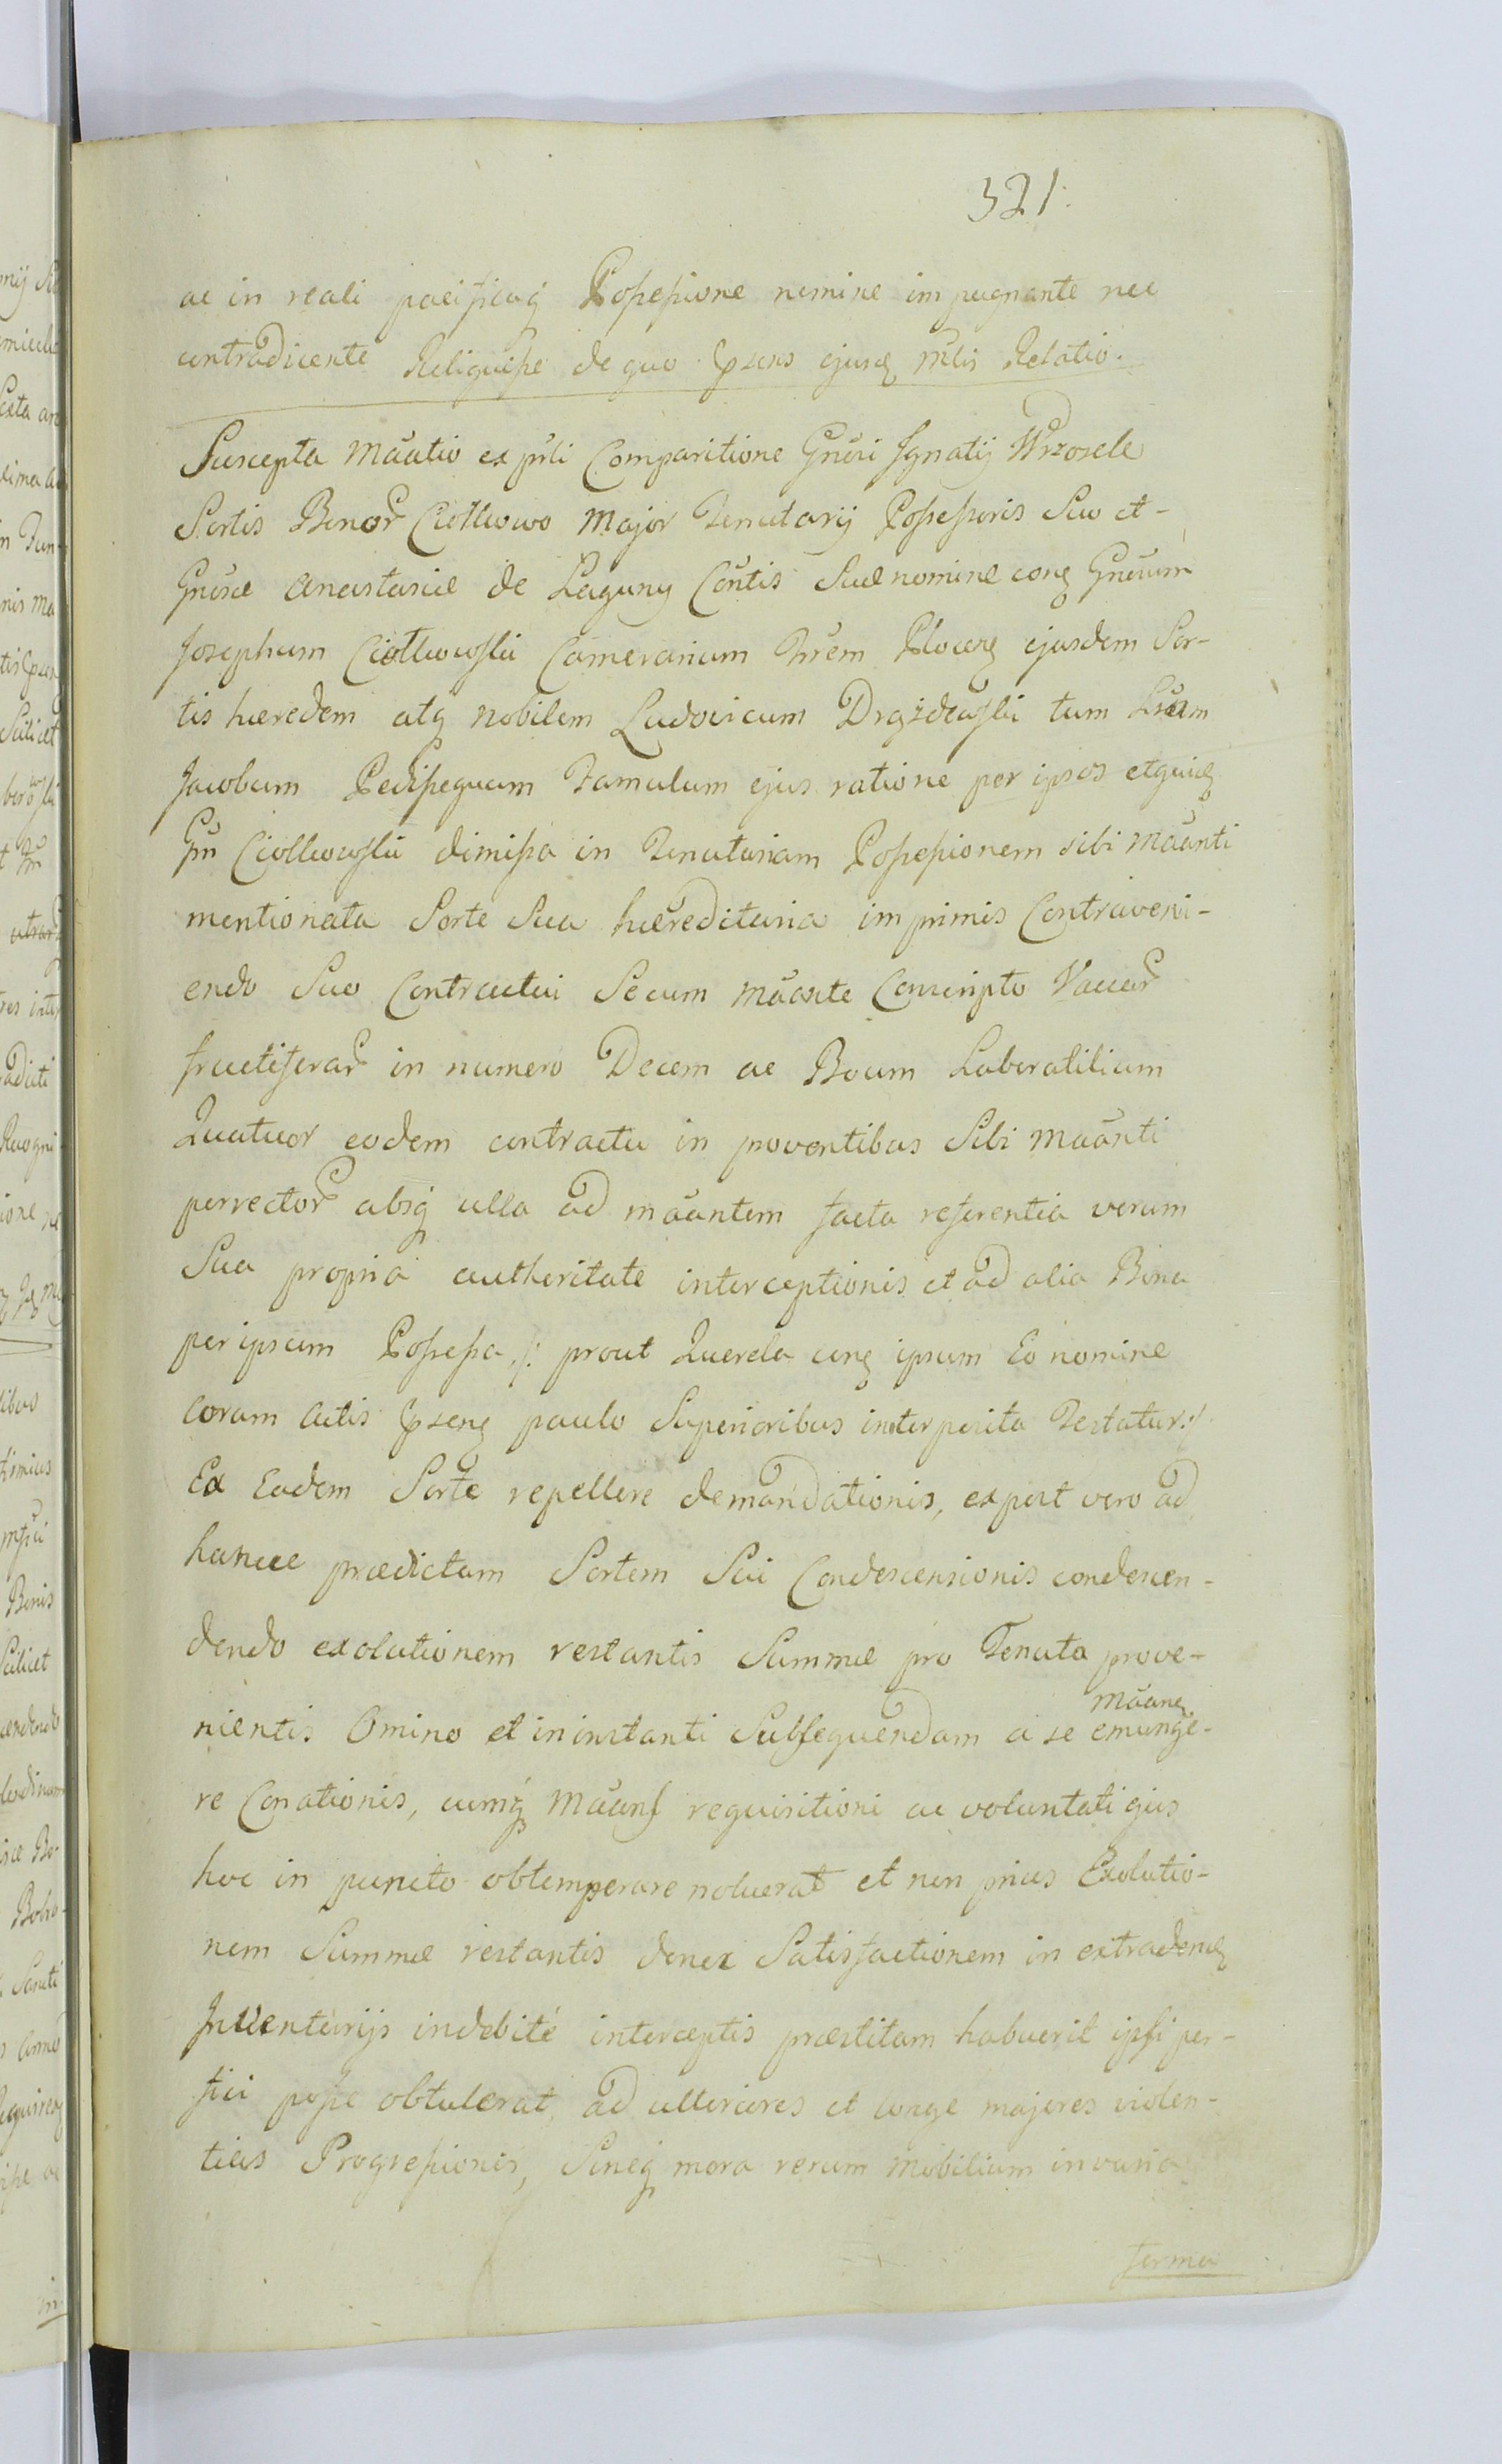 321.
ac in reali pacificaq́ Possessione nemine impugnante nec
contradicente Reliquisse de quo psens ejusq mlis Relatio.
Suscepta Mãatio ex pñli Comparitione Gnõri Ignatij Wrzosek
Sortis Bonor Ciołkowo Major Tenutarij Possessoris Suo et-
Gnõsæ Anastasiæ de Laguny Cõntis Suæ nomine cong Gnõrum
Josephum Ciołkowski Camerarium Trrem Plocens ejusdem Sor-
tis hæredem atq nobilem Ludovicum Drążdewski tum
Jacobum Pedissequum Famulum ejus ratione per ipsos
Gñ Ciołkowski dimissa in Tenutariam Possessionem sibi Mãanti
mentionata Sorte Sua hæreditaria imprimis Contraveni-
endo Suo Contractui Secum Mãante Conscripto Vaccar
fructiferar in numero Decem ac Boum Laboratilium
Quatuor eodem contractu in proventibus Sibi Mãanti
perrector absq ulla ad mãantem facta referentia verum
Sua propria authoritate interceptionis et ad alia Bona
per ipsum Possessa /: prout Querela cong ipsum Eo nomine
coram Actis pseng paulo Superioribus interposita Testatur :/.
Ex Eadem Sorte repellere demandationis, expost vero ad
hancce prædictam Sortem Sui Condescensionis condescen-
dendo exolutionem restantis Summæ pro Tenuta prove-
nientis Omino et in instanti Subsequendam a se Mãane emunge-
re Conationis, cumq́ Mãans requisitioni ac voluntati ejus
hoc in puncto obtemperare noluerat et non prius Exolutio-
nem Summæ restantis donec Satisfactionem in extradend
Inventarijs indebité interceptis præstitam habuerit ipsi per-
fici posse obtulerat, ad ulteriores et longe majores violen-
tias Progressionis, Sineq mora rerum Mobilium in varia
forma